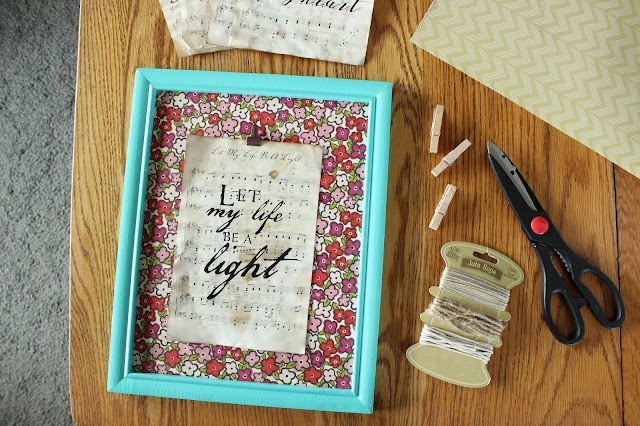 heart
Let My Life Be A Light
LET
my life
BE A
light
Jute Rope